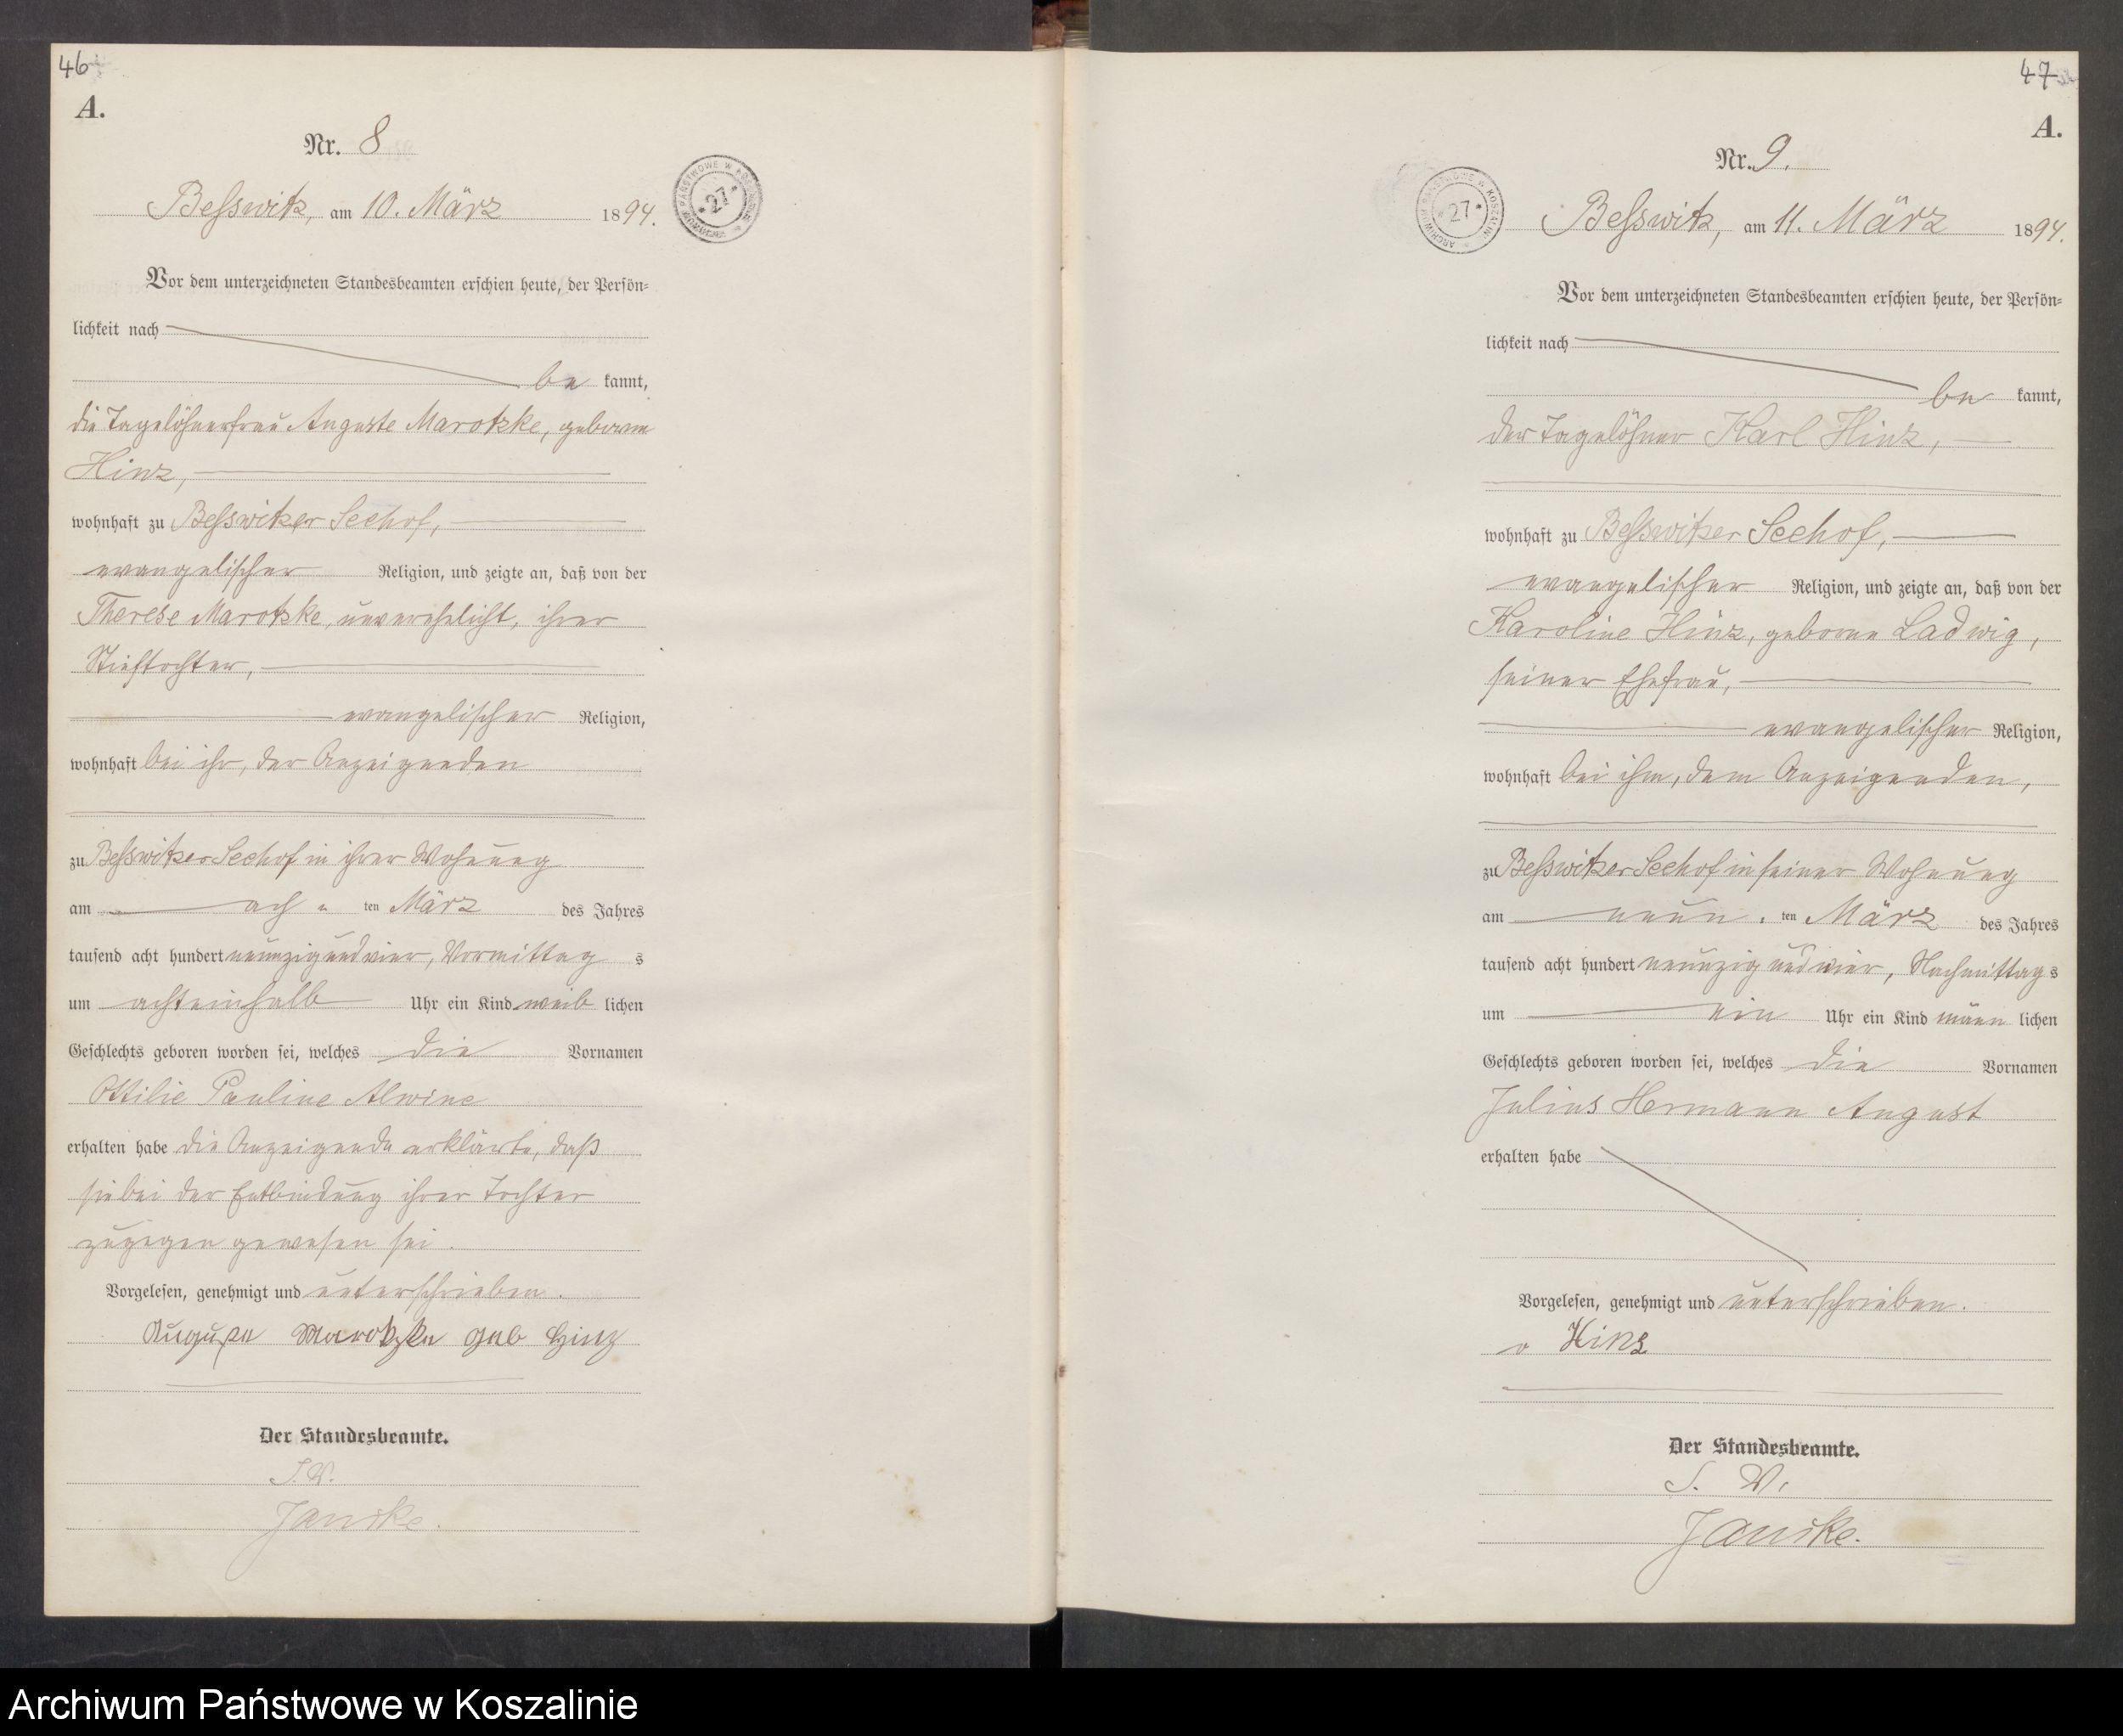 46
A.
Nr. 8
Beßwitz, am 10. März 1894.
ARCHIWUM PAŃSTWOWE W KOSZALINIE * 27 *
Vor dem unterzeichneten Standesbeamten erschien heute, der Persön-
lichkeit nach
be kannt,
die Tagelöhnerfrau Auguste Marotzke, geborene
Hinz,
wohnhaft zu Beßwitzer Seehof,
evangelischer Religion, und zeigte an, daß von der
Therese Marotzke, unverehelicht, ihrer
Stieftochter,
evangelischer Religion,
wohnhaft bei ihr, der Anzeigenden
zu Beßwitzer Seehof in ihrer Wohnung
am ach ten März des Jahres
tausend acht hundert neunzig und vier, Vormittag s
um achteinhalb Uhr ein Kind weib lichen
Geschlechts geboren worden sei, welches die Vornamen
Ottilie Pauline Alwine
erhalten habe die Anzeigende erklärte, daß
sie bei der Entbindung ihrer Tochter
zugegen gewesen sei.
Vorgelesen, genehmigt und unterschrieben.
Auguste Marotzke geb Hinz
Der Standesbeamte.
I. V.
Janske.
47
A.
Nr. 9.
Beßwitz, am 11. März 1894.
ARCHIWUM PAŃSTWOWE W KOSZALINIE * 27 *
Vor dem unterzeichneten Standesbeamten erschien heute, der Persön-
lichkeit nach
be kannt,
der Tagelöhner Karl Hinz,
wohnhaft zu Beßwitzer Seehof,
evangelischer Religion, und zeigte an, daß von der
Karoline Hinz, geborne Ladwig,
seiner Ehefrau,
evangelischer Religion,
wohnhaft bei ihm, dem Anzeigenden,
zu Beßwitzer Seehof in seiner Wohnung
am neun. ten März des Jahres
tausend acht hundert neunzig und vier, Nachmittag s
um ein Uhr ein Kind männ lichen
Geschlechts geboren worden sei, welches die Vornamen
Julius Hermann August
erhalten habe
Vorgelesen, genehmigt und unterschrieben.
Hinz
Der Standesbeamte.
I. V.
Janske.
Archiwum Państwowe w Koszalinie